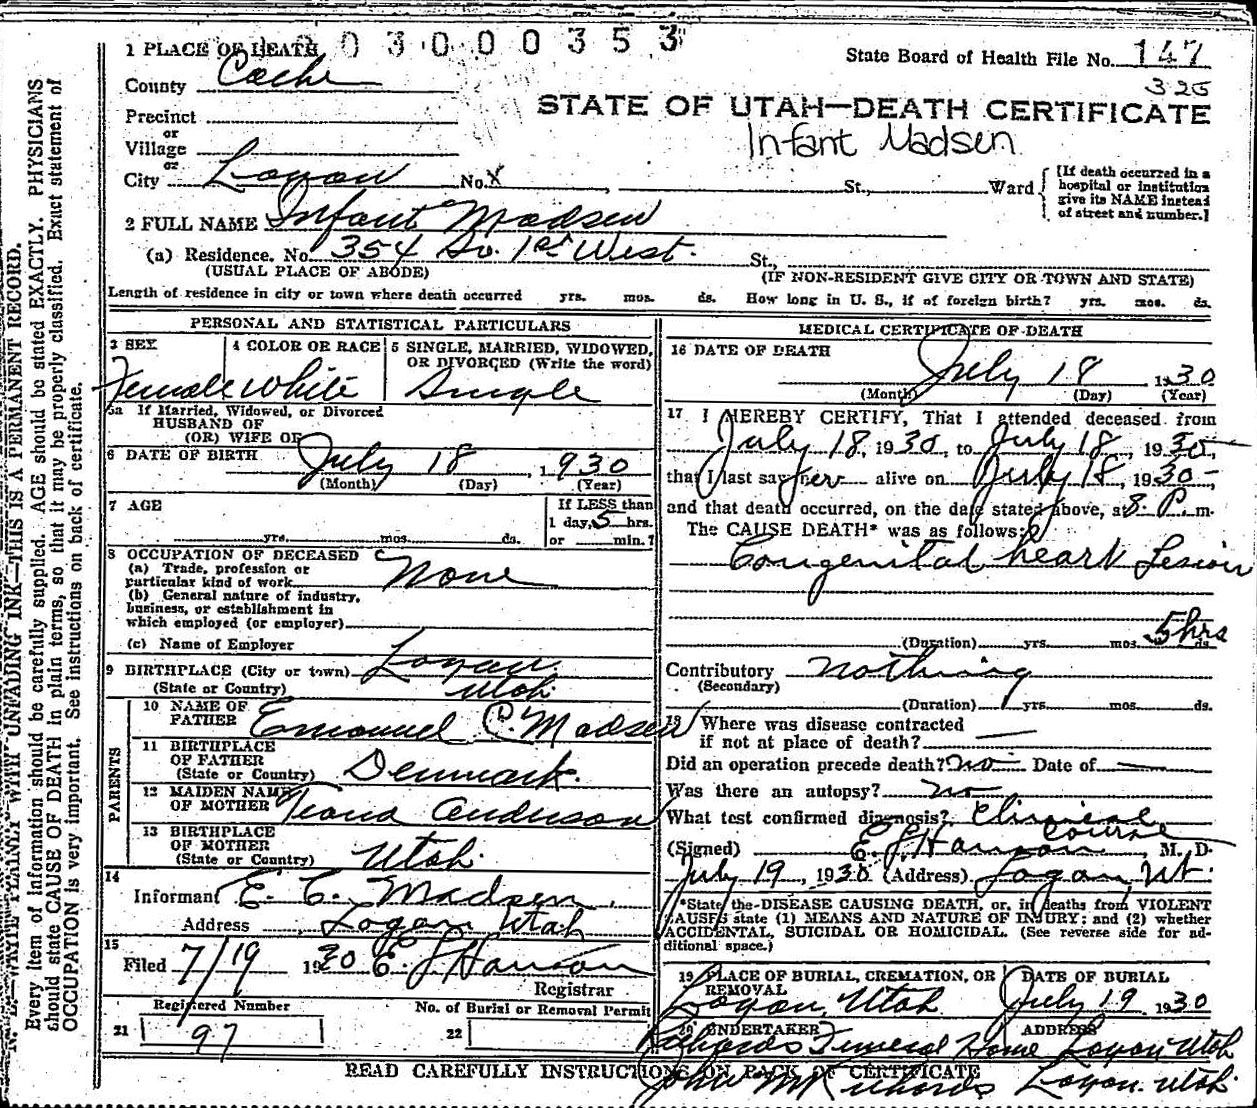 N. B.—WRITE PLAINLY WITH UNFADING INK—THIS IS A PERMANENT RECORD.
Every item of information should be carefully supplied. AGE should be stated EXACTLY. PHYSICIANS
should state CAUSE OF DEATH in plain terms, so that it may be properly classified. Exact statement of
OCCUPATION is very important. See instructions on back of certificate.
03000353
1 PLACE OF DEATH
State Board of Health File No. 147
325
County Cache
STATE OF UTAH—DEATH CERTIFICATE
Infant Madsen
Precinct
or
Village
or
City Logan No. X St., Ward
[If death occurred in a
hospital or institution
give its NAME instead
of street and number.]
2 FULL NAME Infant Madsen
(a) Residence. No. 354 So. 1st West. St.,
(USUAL PLACE OF ABODE) (IF NON-RESIDENT GIVE CITY OR TOWN AND STATE)
Length of residence in city or town where death occurred yrs. mos. ds. How long in U. S., if of foreign birth? yrs. mos. ds.
PERSONAL AND STATISTICAL PARTICULARS
3 SEX 4 COLOR OR RACE 5 SINGLE, MARRIED, WIDOWED,
OR DIVORCED (Write the word)
Female White Single
5a If Married, Widowed, or Divorced
HUSBAND OF
(OR) WIFE OF
6 DATE OF BIRTH July 18 1930
(Month) (Day) (Year)
7 AGE If LESS than
1 day, 5 hrs.
yrs. mos. ds. or min.?
8 OCCUPATION OF DECEASED
(a) Trade, profession or
particular kind of work None
(b) General nature of industry,
business, or establishment in
which employed (or employer)
(c) Name of Employer
9 BIRTHPLACE (City or town) Logan
(State or Country) Utah.
PARENTS
10 NAME OF
FATHER Emanuel C. Madsen
11 BIRTHPLACE
OF FATHER
(State or Country) Denmark.
12 MAIDEN NAME
OF MOTHER Teana Anderson
13 BIRTHPLACE
OF MOTHER
(State or Country) Utah.
14
Informant E. C. Madsen.
Address Logan Utah
15
Filed 7/19 1930 E J Hanson
Registrar
Registered Number No. of Burial or Removal Permit
21 97 22
MEDICAL CERTIFICATE OF DEATH
16 DATE OF DEATH
July 18 1930
(Month) (Day) (Year)
17 I HEREBY CERTIFY, That I attended deceased from
July 18, 1930, to July 18, 1930,
that I last saw her alive on July 18, 1930,
and that death occurred, on the date stated above, at 8. P. m.
The CAUSE DEATH* was as follows:
Congenital heart Lesion
5 hrs
(Duration) yrs. mos. ds.
Contributory nothing
(Secondary)
(Duration) yrs. mos. ds.
18 Where was disease contracted
if not at place of death?
Did an operation precede death? no Date of
Was there an autopsy? no
What test confirmed diagnosis? Clinical
course
(Signed) E. J. Hanson, M. D.
July 19, 1930 (Address) Logan, Ut.
*State the DISEASE CAUSING DEATH, or, in deaths from VIOLENT
CAUSES state (1) MEANS AND NATURE OF INJURY; and (2) whether
ACCIDENTAL, SUICIDAL OR HOMICIDAL. (See reverse side for ad-
ditional space.)
19 PLACE OF BURIAL, CREMATION, OR DATE OF BURIAL
REMOVAL
Logan, Utah July 19 1930
20 UNDERTAKER ADDRESS
Richards Funeral Home Logan Utah
John M Richards Logan. Utah.
READ CAREFULLY INSTRUCTIONS ON BACK OF CERTIFICATE